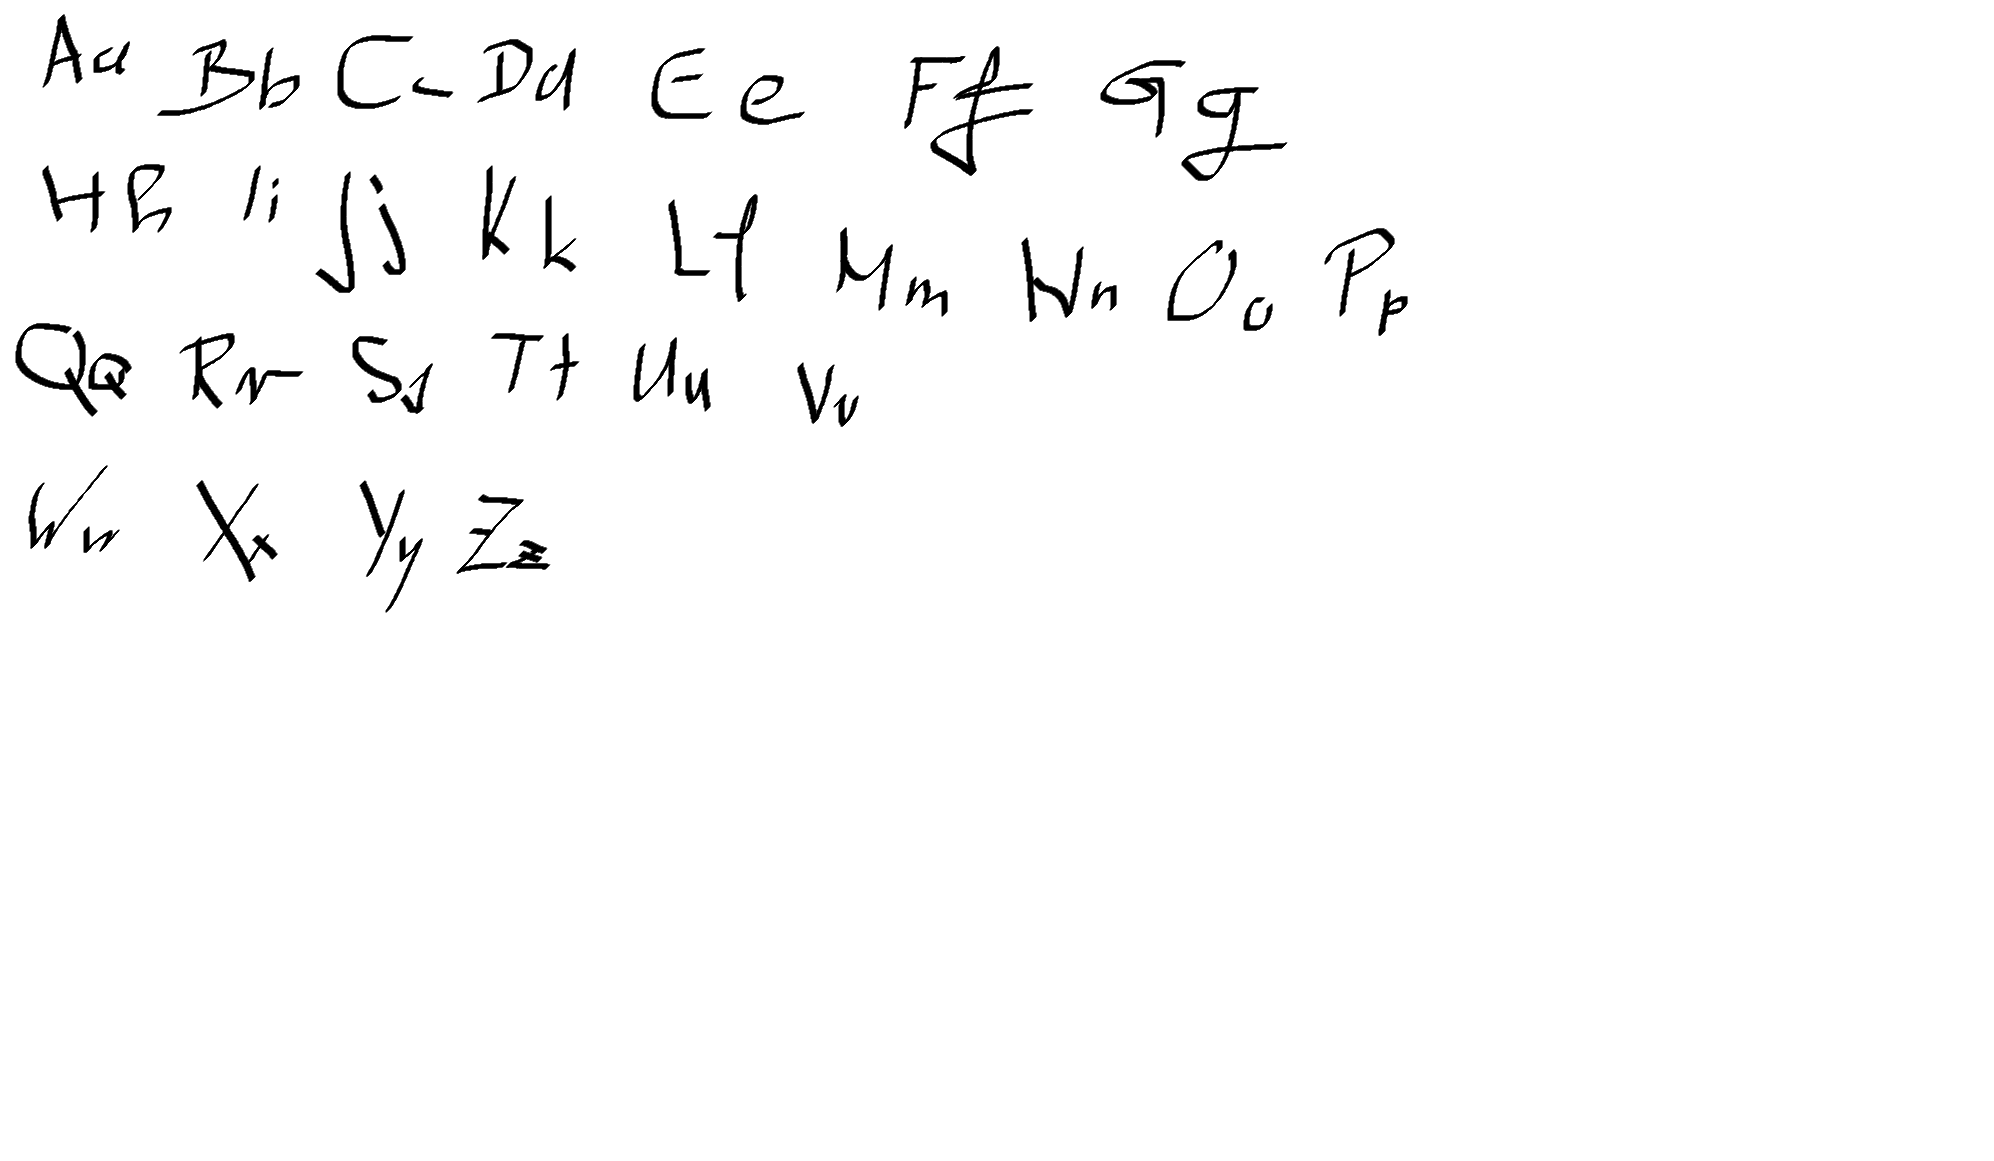 Aa Bb Cc Dd Ee Ff Gg
Hh Ii Jj Kk Ll Mm Nn Oo Pp
Qq Rr Ss Tt Uu Vv
Ww Xx Yy Zz